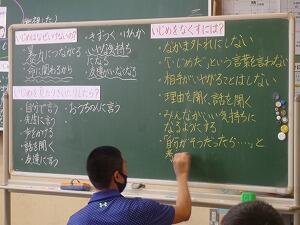 いじめはなぜいけないの？
暴れにつながる
命に関わるから
・きずつく けんか
いやな気持ちになる
友達がいなくなる
いじめを見たりきいたりしたら？
・自分で言う
・先生に言う
・歩をかける
・話を聞く
・友達に言う
・おうちの人に言う
いじめをなくすには？
・なかま外れにしない
・「いじめ」という言葉を言わない
・相手がいやがることはしない
・理由を聞く、話を聞く
・みんながいい気持ちに
なるようにする
・「自分がそうだったら…。」と
考